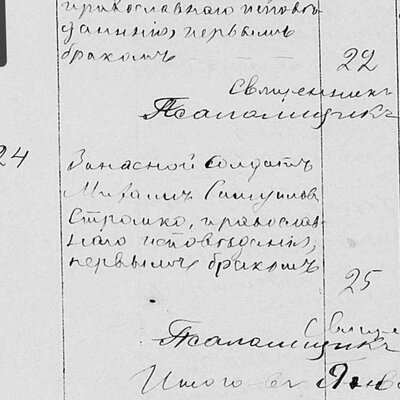 православнаго испове-
данія, первымъ
бракомъ
22
Священникъ
Псаломщикъ
24
Запасной солдатъ
Михаилъ Самуиловъ
Стромко, православ-
наго исповѣданія,
первымъ бракомъ
25
Свяще
Псаломщикъ
Итого въ Янва